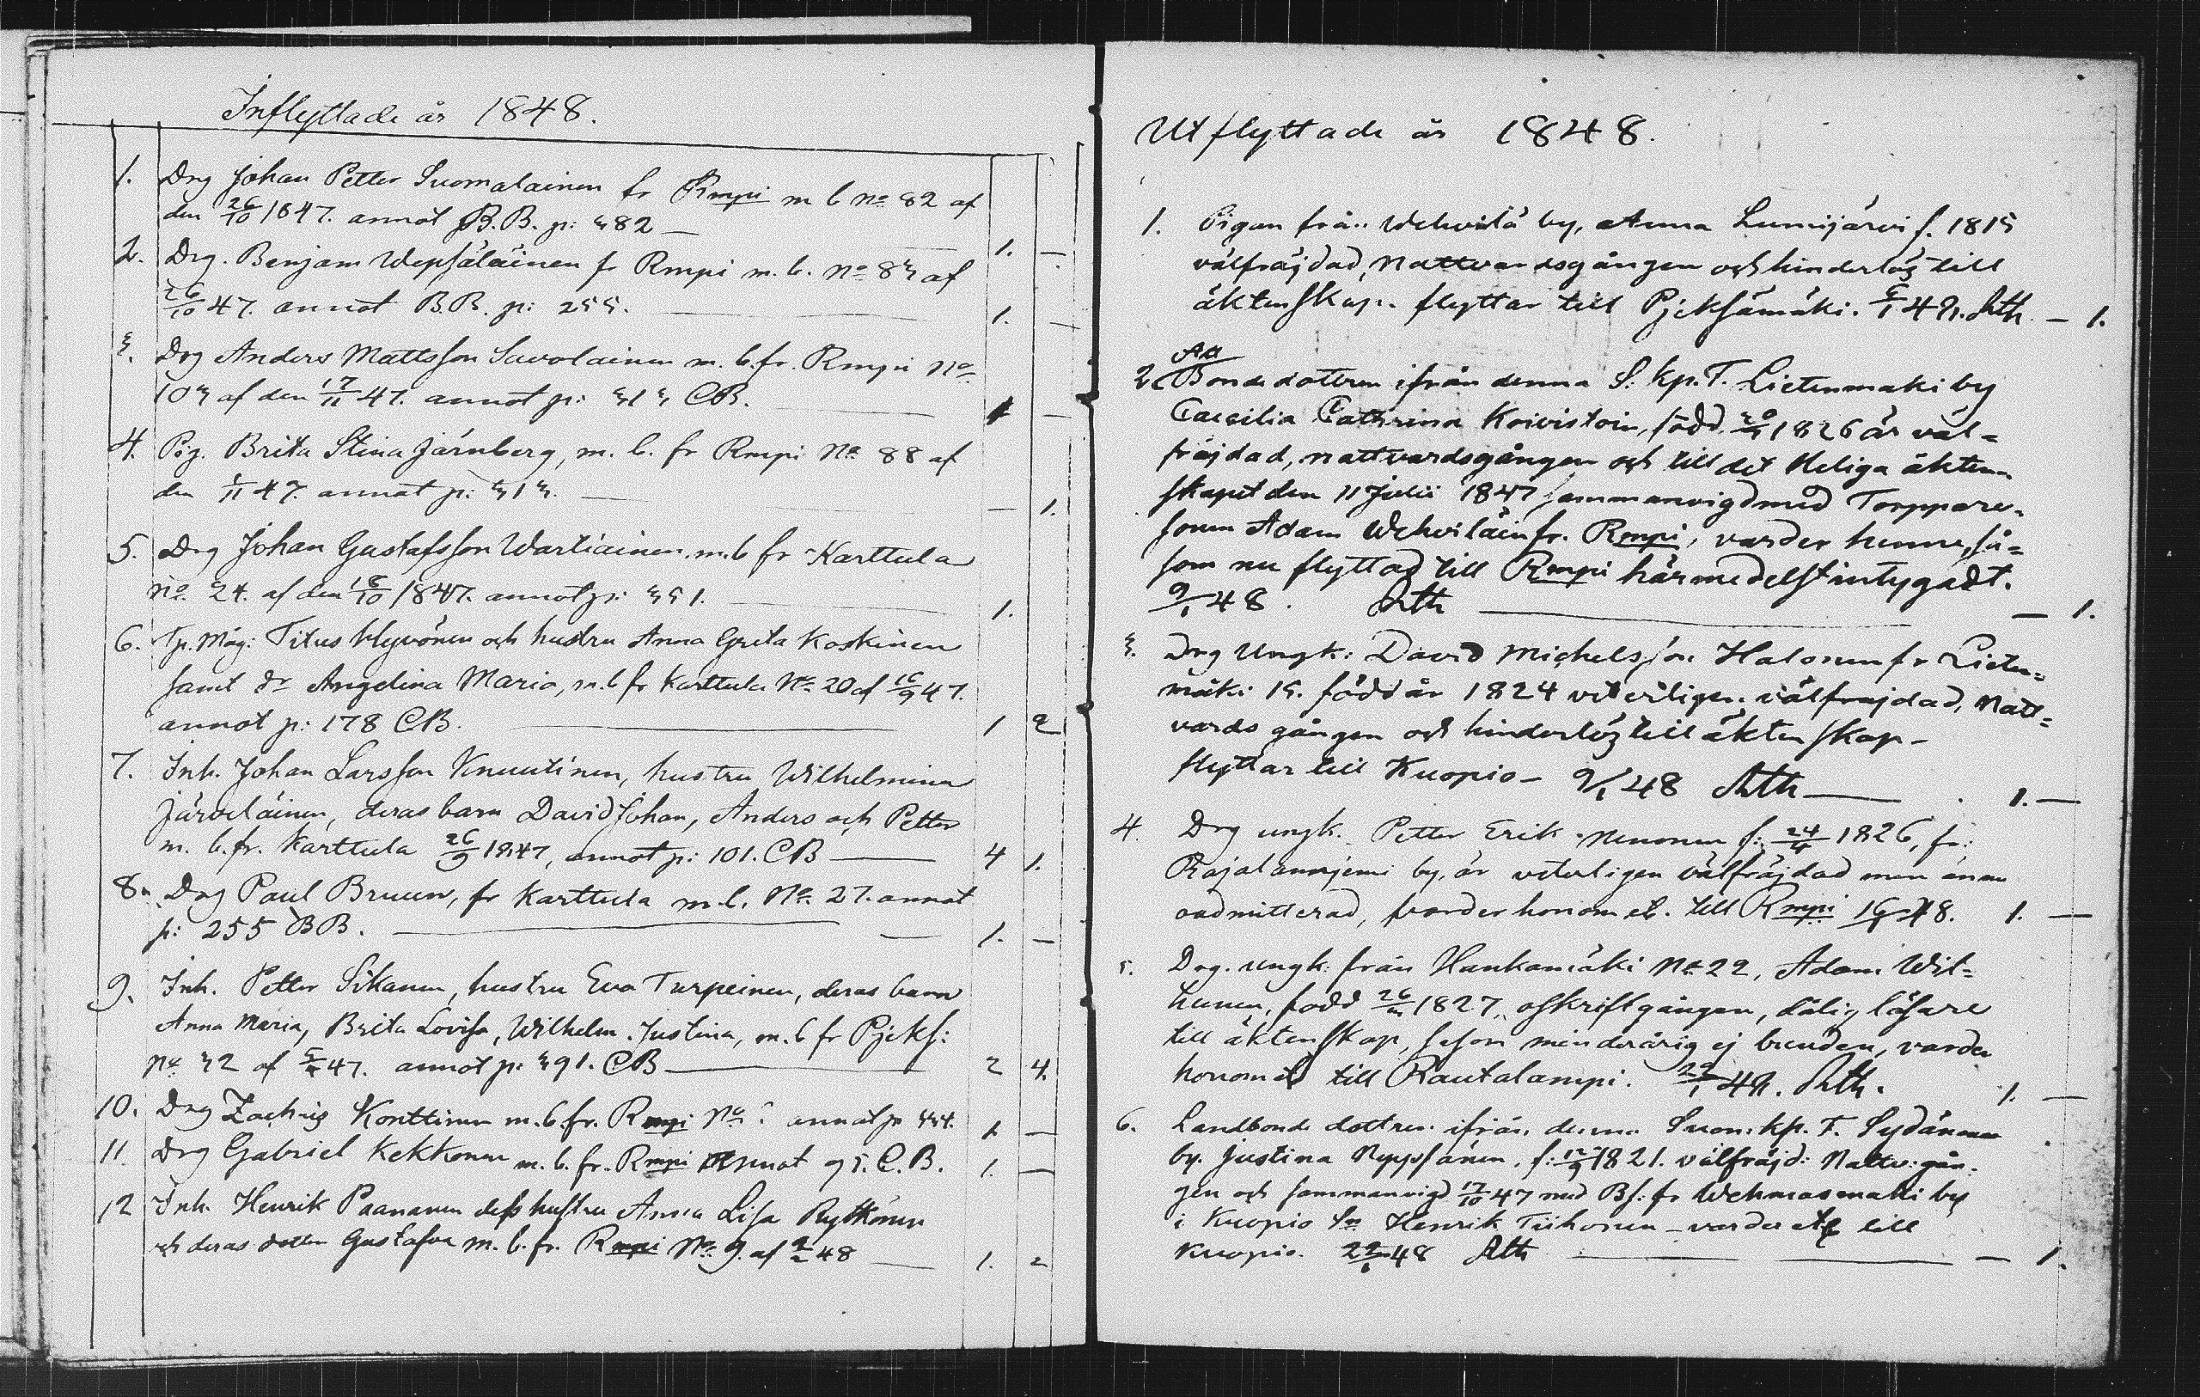 Inflyttade år 1848.
1. Drg Johan Petter Suomalainen fr Rmpi m b No 82 af
den 26/10 1847. annot B.B. p: 382 — 1. —
2. Drg. Benjam Wepsäläinen fr Rmpi m. b. No 83 af
26/10 47. annot B.B. p: 255. — 1. —
3. Drg Anders Mattsson Savolainen m. b. fr. Rmpi No
103 af den 17/11 47. annot p: 313 CB. — 1 —
4. Pig. Brita Stina Järnberg, m. b. fr Rmpi No 88 af
den /11 47. annot p: 313. — — 1.
5. Drg Johan Gustafsson Wartiainen, m. b fr Karttula
No 24. af den /10 1847. annot p: 351. — 1.
6. Tp. Måg: Titus Hyvönen och hustru Anna Greta Koskinen
samt dr Angelina Maria, m. b fr Karttula No 20 af 16/9 47.
annot p: 178 CB. — 1 2
7. Inh. Johan Larsson Knuutinen, hustru Wilhelmina
Järveläinen, deras barn David Johan, Anders och Petter
m. b. fr. Karttula 26/9 1847, annot p: 101. CB — 4 1.
8. Drg Paul Bruun, fr Karttula m. b. No 27. annot
p: 255 BB. — 1. —
9. Inh. Petter Sikanen, hustru Eva Turpeinen, deras barn
Anna Maria, Brita Lovisa, Wilhelm. Justina, m. b fr Pjeks:
No 32 af 47. annot p: 391. CB — 2 4.
10. Drg Zachris Konttinen m. b. fr. Rmpi No annot p 334. 1 —
11. Drg Gabriel Kekkonen m. b. fr. Rmpi annot 95. C. B. 1. —
12 Inh. Henrik Paananen dess hustru Anna Lisa Rytkönen
och deras dotter Gustafva m. b. fr. Rmpi No 9. af 2/2 48 — 1. 2
Utflyttade år 1848.
1. Pigan från Wehvilä by, Anna Lumijärvi f. 1815
välfräjdad, nattvardsgången och hinderlös till
äktenskap. flyttar till Pjeksämäki. /1 48. Ath — 1.
Att
2. Bonde dottren ifrån denna S: kp. T. Lietenmäki by
Caecilia Cathrina Koivistoin, född 1826 är väl=
fräjdad, nattvardsgången och till det Heliga äkten
skapet den 11 Julii 1847 sammanvigd med Torppare=
sonen Adam Wehviläin fr. Rmpi, varder henne, så=
som nu flyttad till Rmpi härmedelst intygadt.
9/1 48. Ath — — 1.
3. Drg Ungk: David Michelsson Halonen fr Lieten=
mäki 15. född år 1824 veterligen välfräjdad, Natt=
vards gången och hinderlös till äktenskap —
flyttar till Kuopio — 9/1 48 Ath — 1. —
4. Drg ungk. Petter Erik Nenonen f: 24/4 1826, fr:
Rajalanniemi by, är veterligen välfräjdad men ännu
oadmitterad, varder honom att. till Rmpi 16/1 48. 1. —
5. Drg. ungk. från Hankamäki No 22, Adam Wil=
hunen, född 26/ 1827, oskriftgången, dålig läsare
till äktenskap, såsom minderårig ej bunden, varder
honom att till Rautalampi. /1 48. Ath. 1. —
6. Landbonde dottren ifrån denna Suon: kp. T. Sydänmaa
by. Justina Nyyssänen, f: /9 1821. välfräjd: Nattv: gån.
gen och sammanvigd 17/10 47 med Bs: fr Wehmasmäki by
i Kuopio Sn Henrik Tiihonen — varder att till
Kuopio. 22/1 48 Ath — — 1.